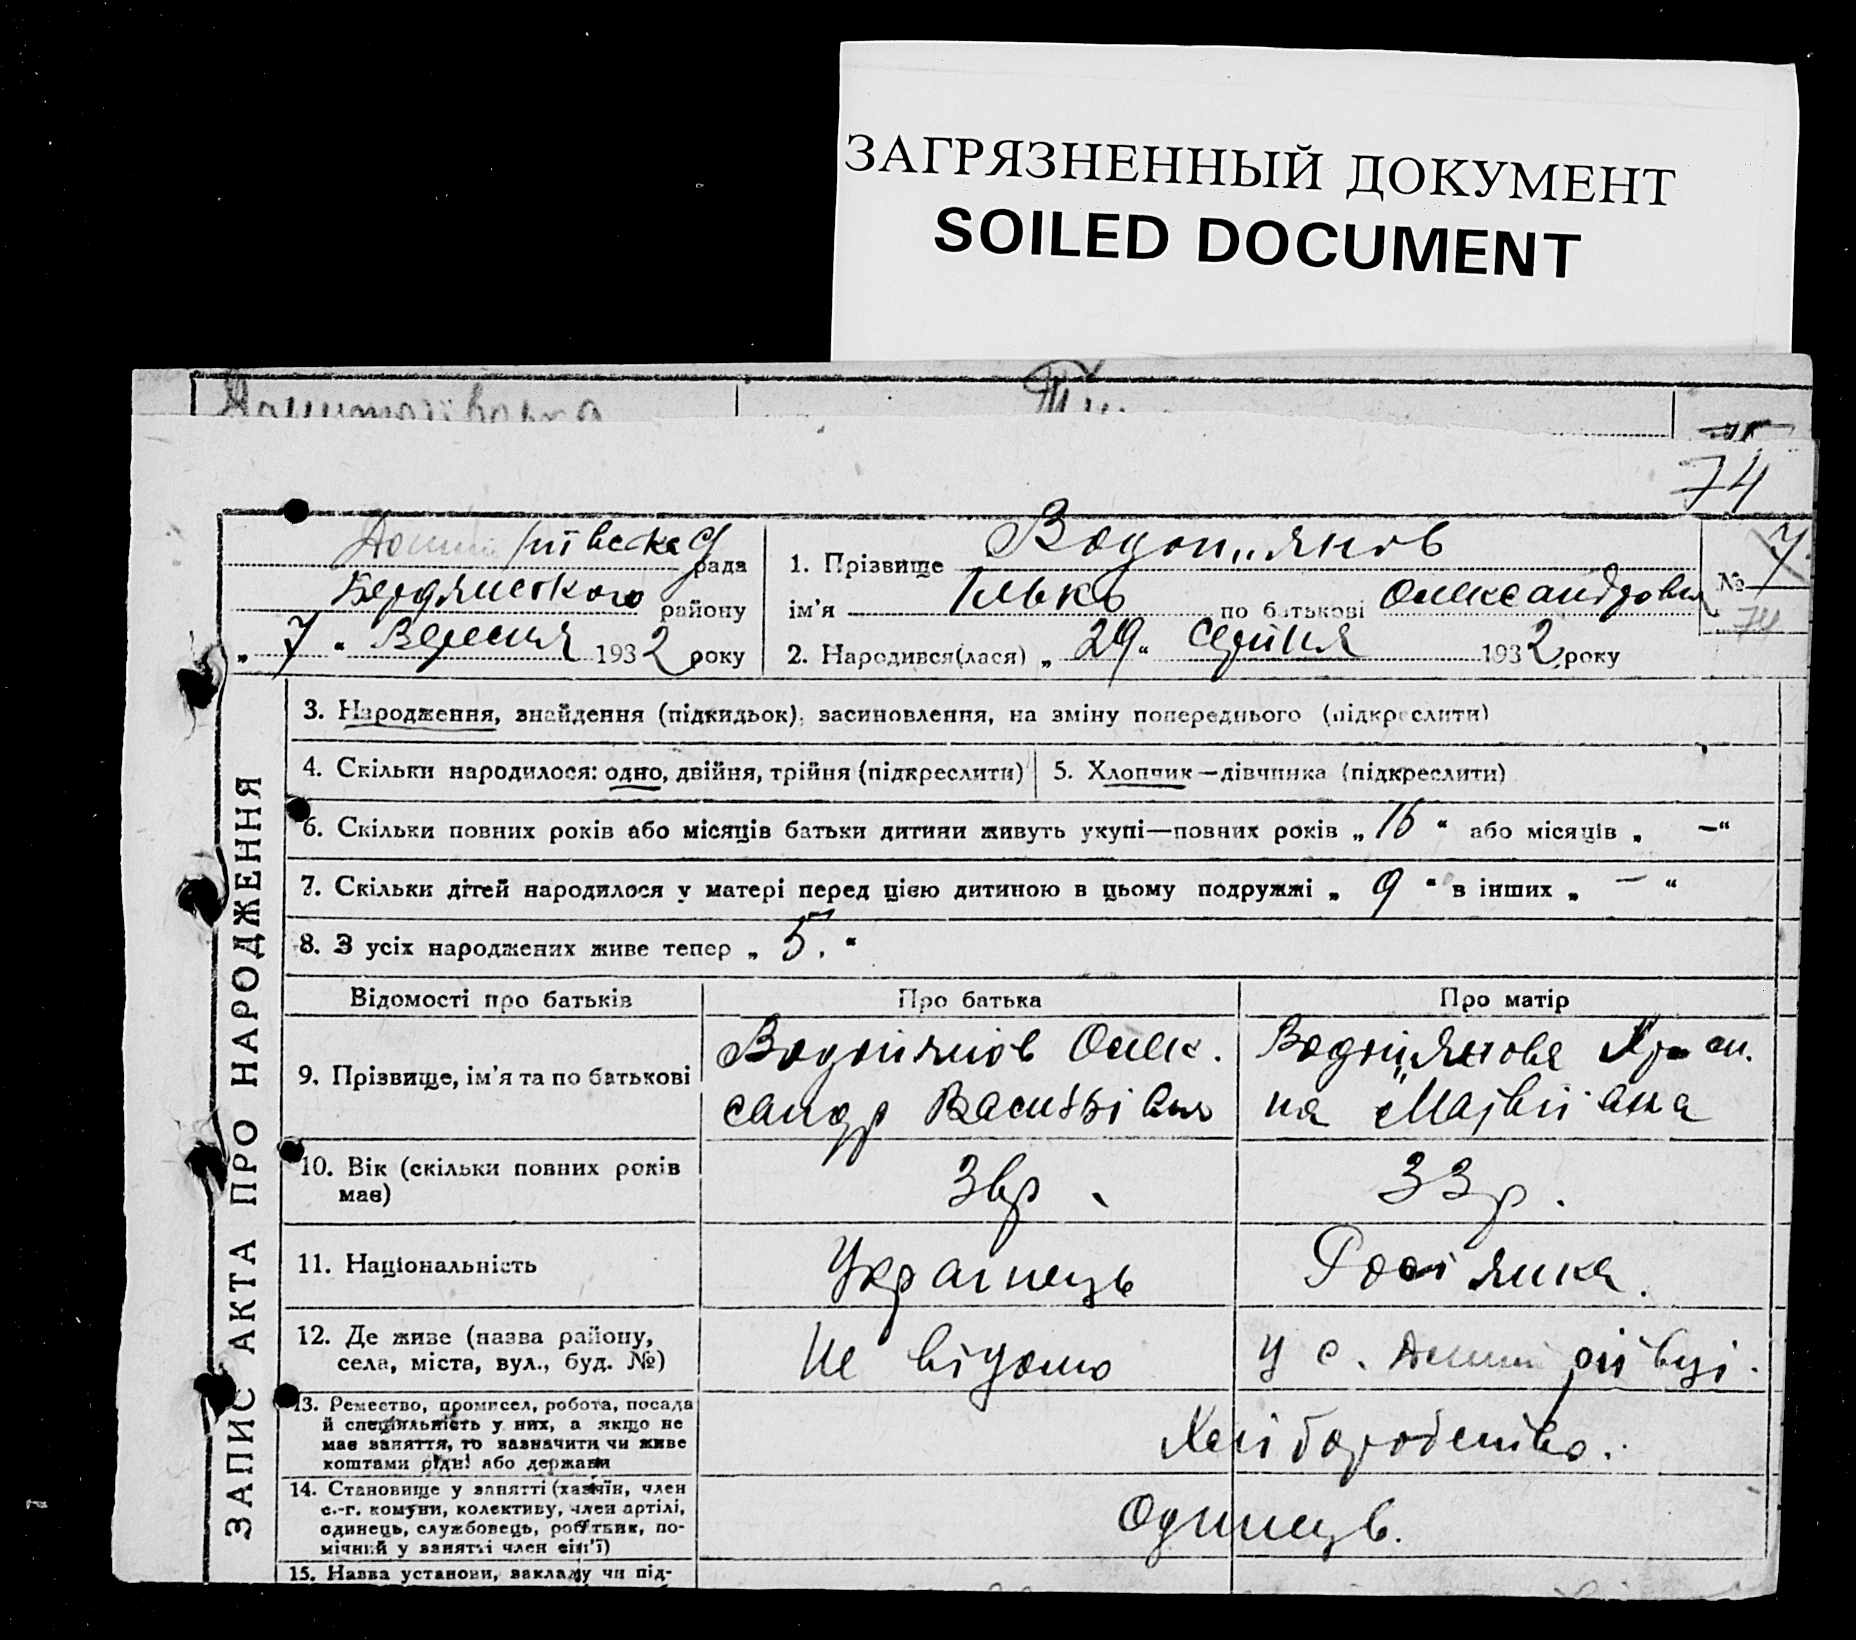 ЗАГРЯЗНЕННЫЙ ДОКУМЕНТ
SOILED DOCUMENT
74
рада
Бердянського району
„ 7 “ Вересня 1932 року
1. Прізвище Водоп„янов
ім’я Ілько по батькові Олександрович
№ 7
74
2. Народився(лася) „ 29 “ серпня 1932 року
ЗАПИС АКТА ПРО НАРОДЖЕННЯ
3. Народження, знайдення (підкидьок), засиновлення, на зміну попереднього (підкреслити)
4. Скільки народилося: одно, двійня, трійня (підкреслити)
5. Хлопчик—дівчинка (підкреслити)
6. Скільки повних років або місяців батьки дитини живуть укупі—повних років „ 16 “ або місяців „ —“
7. Скільки дітей народилося у матері перед цією дитиною в цьому подружжі „ 9 “ в інших „ — “
8. З усіх народжених живе тепер „ 5. “
Відомості про батьків
Про батька
Про матір
9. Прізвище, ім’я та по батькові
Водопянов Олек.
сандр Васильович
Водоп„янова
на Матвіївна
10. Вік (скільки повних років
має)
36р
33р.
11. Національність
Українець
Росіянка.
12. Де живе (назва району,
села, міста, вул., буд. №)
Не відомо
у с.
13. Ремество, промисел, робота, посада
й спеціяльність у них, а якщо не
має заняття, то зазначити чи живе
коштами рідні або держави
Хліборобство.
14. Становище у занятті (хазяїн, член
с.-г. комуни, колективу, член артілі,
одинець, службовець, робітник, по-
мічний у занятті член сім’ї)
Одинець.
15. Назва установи, закладу чи під-